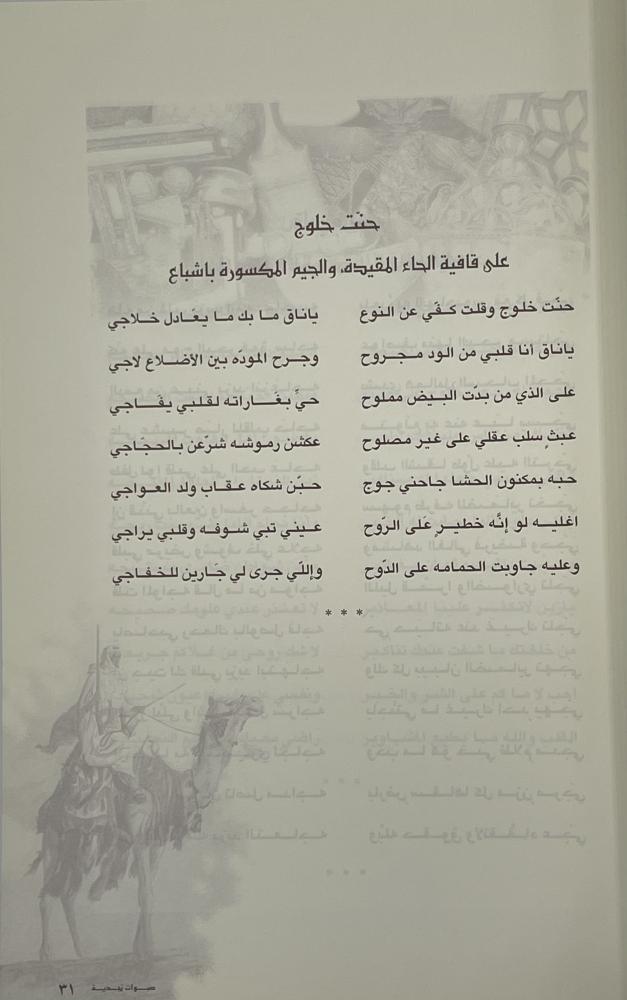 حنّت خلوج
على قافية الحاء المقيدة، والجيم المكسورة باشباع
حنّت خلوج وقلت كفّي عن النوع ياناق ما بك ما يعَادل خلاجي
ياناق أنا قلبي من الود مجروح وجرح المودّه بين الأضلاع لاجي
على الذي من بدّت البيض مملوح حيَّ بغَاراته لقلبي يفَاجي
عبثٍ سلب عقلي على غير مصلوح عكشن رموشه شرّعن بالحجَاجي
حبه بمكنون الحشا جاحني جوح حبّن شكاه عقاب ولد العواجي
اغليه لو إنَّه خطيرٍ عَلى الرّوح عيني تبي شوفه وقلبي يراجي
وعليه جاوبت الحمامه على الدّوح وإللّي جرى لي جَارين للخفاجي
* * *
صوات نجدية ٣١